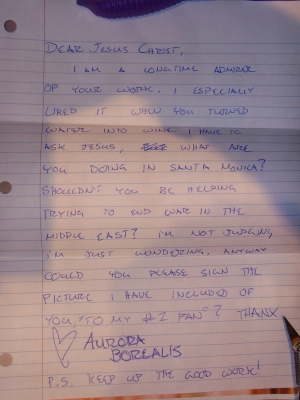 DEAR JESUS CHRIST,
I AM A LONGTIME ADMIRER
OF YOUR WORK. I ESPECIALLY
LIKED IT WHEN YOU TURNED
WATER INTO WINE. I HAVE TO
ASK JESUS, WHAT ARE
YOU DOING IN SANTA MONICA?
SHOULDN'T YOU BE HELPING
TRYING TO END WAR IN THE
MIDDLE EAST? I'M NOT JUDGING,
I'M JUST WONDERING. ANYWAY
COULD YOU PLEASE SIGN THE
PICTURE I HAVE INCLUDED OF
YOU, "TO MY #1 FAN"? THANX,
AURORA
BOREALIS
P.S. KEEP UP THE GOOD WORK!